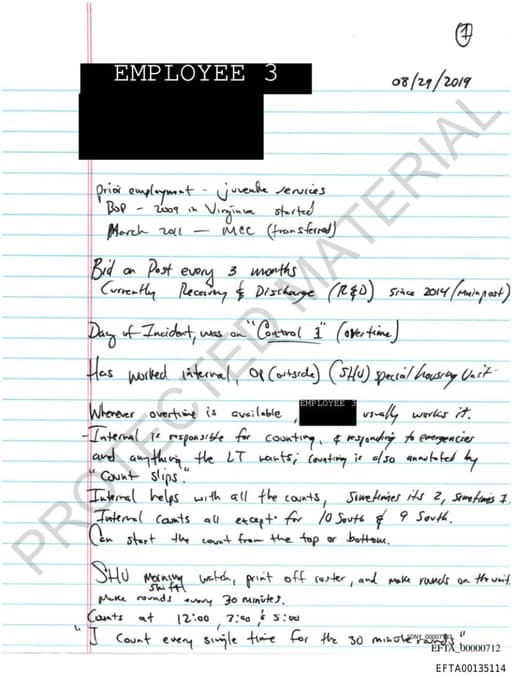 1
EMPLOYEE 3
08/29/2019
prior employment - juvenile services
BOP - 2009 in Virginia started
March 2011 — MCC (transferred)
Bid on Post every 3 months
Currently Receiving & Discharge (R&D) since 2014/(main post)
Day of Incident, was on "Control 1" (overtime)
Has worked internal, OP (outside) (SHU) special housing Unit
Wherever overtime is available, EMPLOYEE 3 usually works it.
- Internal is responsible for counting, & responding to emergencies
and anything the LT wants; counting is also annotated by
"Count slips."
Internal helps with all the counts, Sometimes its 2, sometimes 1.
Internal counts all except for 10 South & 9 South.
Can start the count from the top or bottom.
SHU morning watch, print off roster, and make rounds on the unit.
shift
Make rounds every 30 minutes.
Counts at 12:00, 3:00, & 5:00
"I count every single time for the 30 minute rounds"
EFTA_00000712
EFTA00135114
PROTECTED MATERIAL